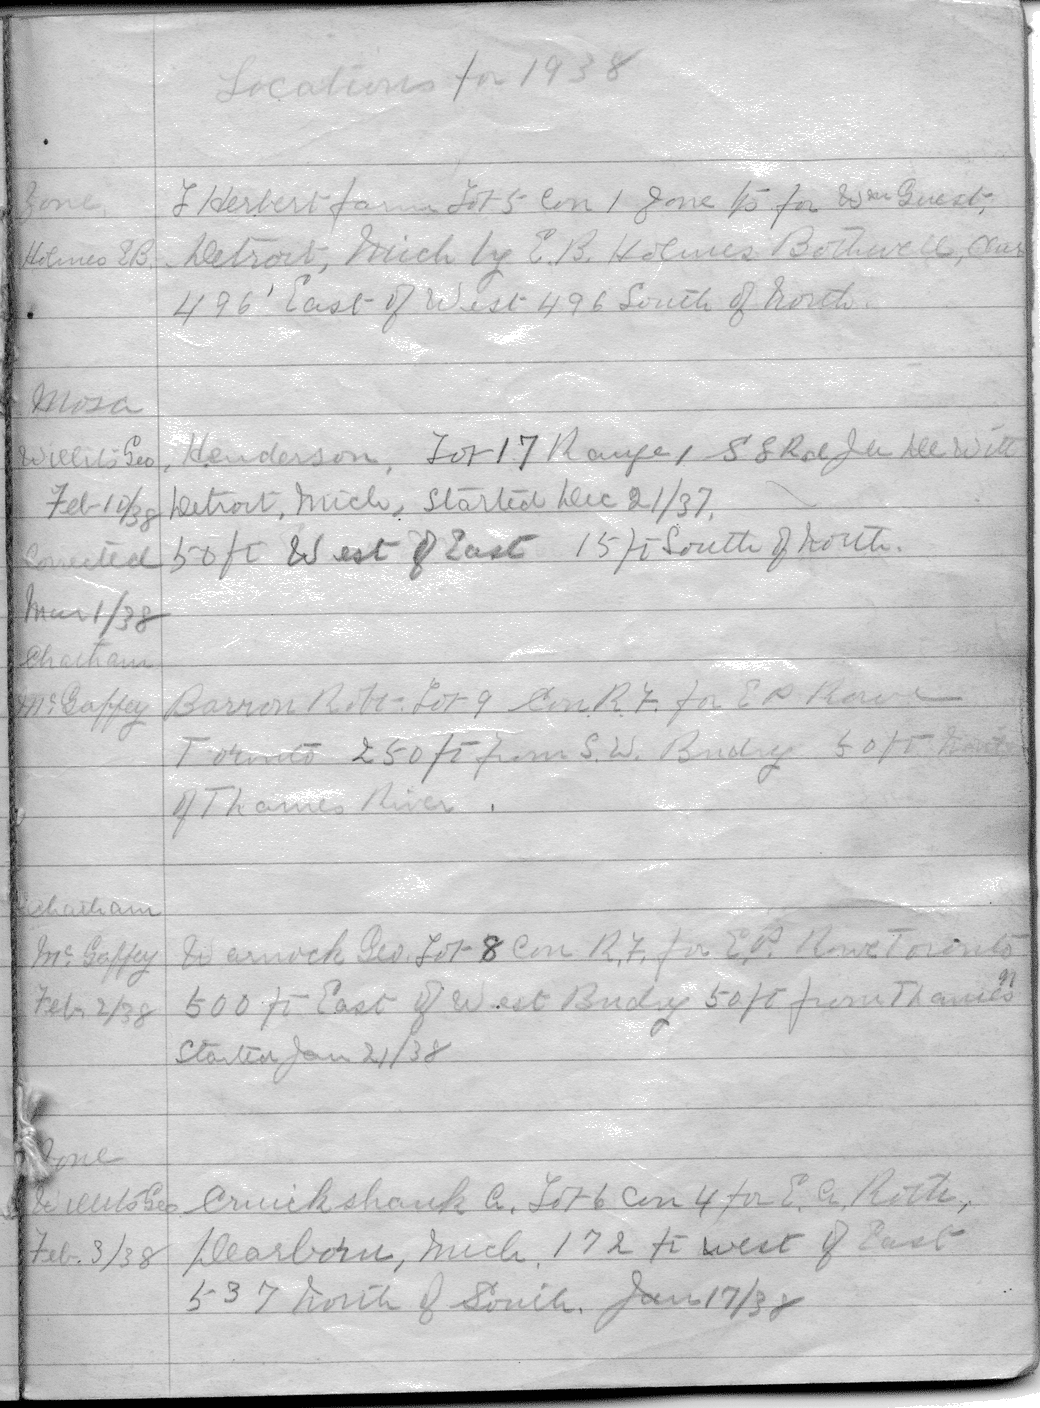 Locations for 1938
Zone, F Herbert farm Lot 5 Con 1 Zone for Wm Guest,
Holmes E.B. Detroit, Mich by E.B. Holmes Bothwell, Ont
496' East of West 496 South of North.
Mosa
Willits Geo, Henderson, Lot 17 Range 1 De Witt
Feb 10/38 Detroit, Mich, Started Dec 21/37.
Corrected 50 ft West of East 15 ft South of North.
Mar 1/38
Chatham
McGaffey Barron Robt. Lot 9 Con. R.F. for E P Rowe
Toronto 250 ft from S.W. Bndry 50 ft North
of Thames River.
Chatham
McGaffey Warnock Geo. Lot 8 Con R.F. for E.P. Rowe Toronto
Feb. 2/38 500 ft East of West Bndry 50 ft from Thames
Started Jan 21/38
Zone
Willits Geo Cruickshank A. Lot 6 Con 4 for E. A. Roth,
Feb. 3/38 Dearborn, Mich. 172 ft West of East
537 North of South. Jan 17/38